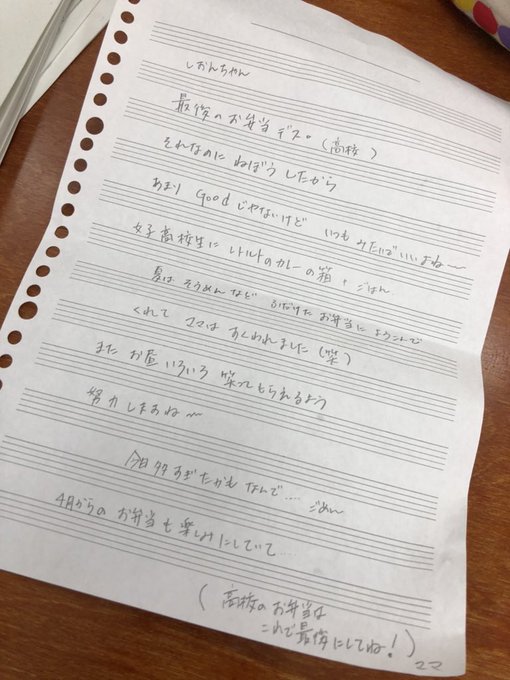 しおんちゃん
最後のお弁当デス。(高校)
それなのに ねぼうしたから
あまり Goodじやないけど いつもみたいでいいよね〜
女子高校生に レトルトのカレーの箱+ごはん
夏は そうめんなど ふざけた お弁当に よろこんで
くれて ママは すくわれました(笑)
また お昼 いろいろ 笑ってもらえるよう
努力しますね〜
今日 多すぎたかも なんで… ごめん
4月からの お弁当も 楽しみにしていて…
(高校の お弁当は
これで最後にしてね!)
ママ